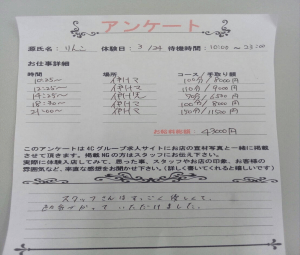 アンケート
源氏名：りんこ 体験日：3/24 待機時間：10:00～23:00
お仕事詳細
時間 場所 コース／手取り額
10:25～ 100分／8000円
12:25～ 110分／9000円
14:25～
18:30～ 100分／8000円
21:00～
お給料総額： 43000円
このアンケートは4Cグループ求人サイトにお店の宣材写真と一緒に掲載
させて頂きます。掲載NGの方はスタッフにお伝え下さい。
実際に体験入店してみて、思った事、スタッフやお店の印象、お客様の
雰囲気など、率直な感想をお聞かせ下さい。（詳しく書いてくれると嬉しいです）
スタッフさんはすっごく優しくて、
いただけました。